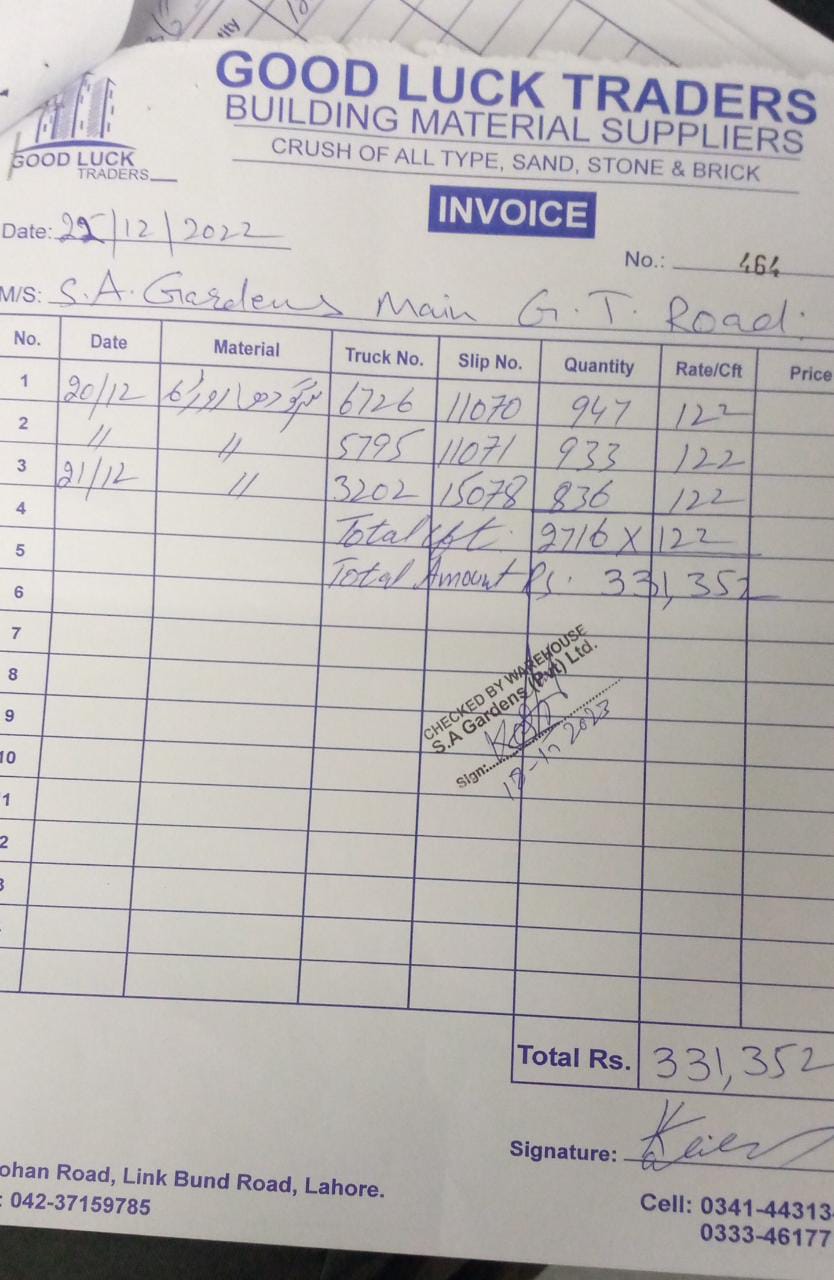 GOOD LUCK TRADERS
BUILDING MATERIAL SUPPLIERS
CRUSH OF ALL TYPE, SAND, STONE & BRICK
GOOD LUCK
TRADERS
INVOICE
Date: /12/2022
No.: 464
M/S: S.A. Gardens Main G.T. Road.
No. Date Material Truck No. Slip No. Quantity Rate/Cft Price
1 20/12 6726 11070 947 122
2 " " 5795 11071 933 122
3 21/12 " 3202 15078 836 122
4 Total cft. 2716 X 122
5 Total Amount Rs. 331,352
6
7
8
9
10
1
2
3
CHECKED BY WAREHOUSE
S.A Gardens (Pvt) Ltd.
Sign:
2023
Total Rs. 331,352
Signature:
ohan Road, Link Bund Road, Lahore.
: 042-37159785
Cell: 0341-44313
0333-46177